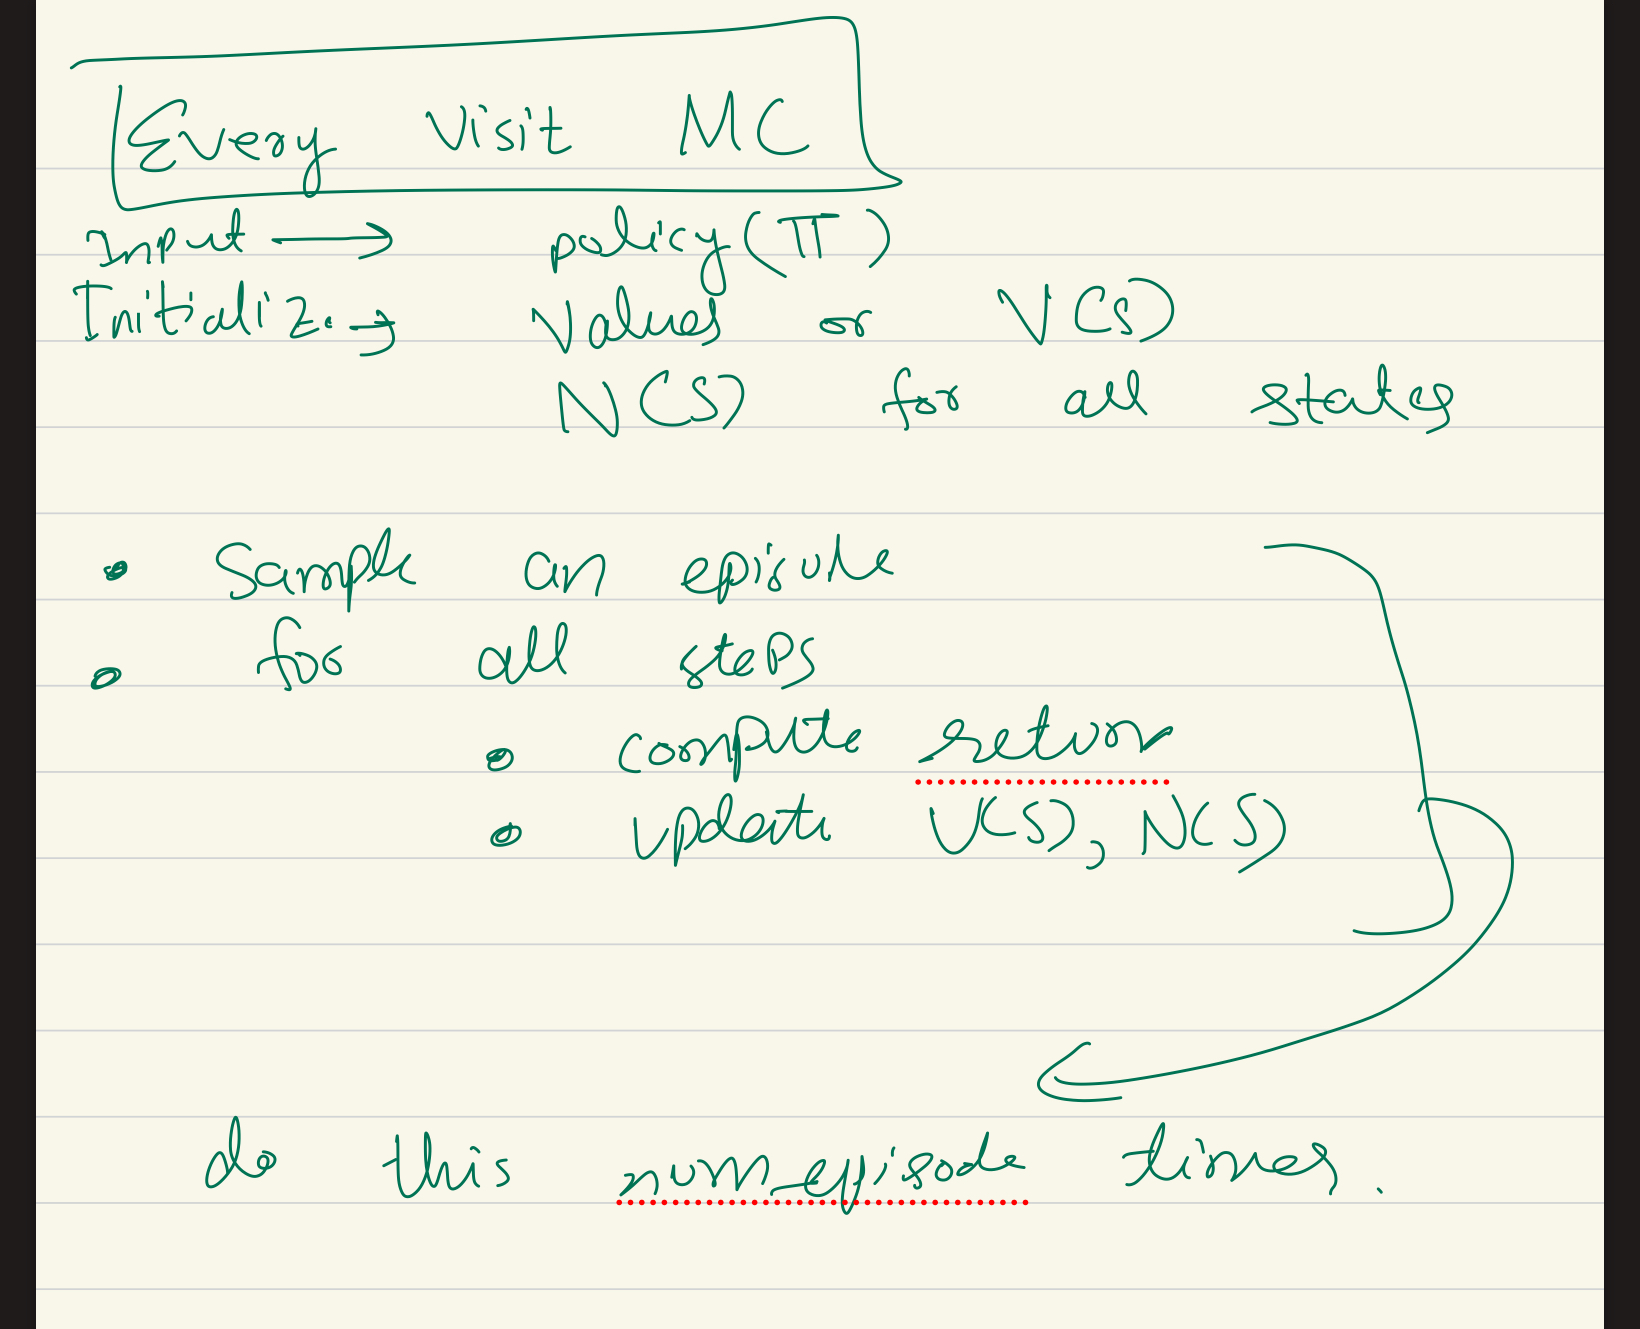 Every Visit MC
Input → policy (π)
Initializ. → Values or V(S)
N(S) for all states
• Sample an episode
• for all steps
• compute return
• update V(S), N(S)
do this num_episode times.